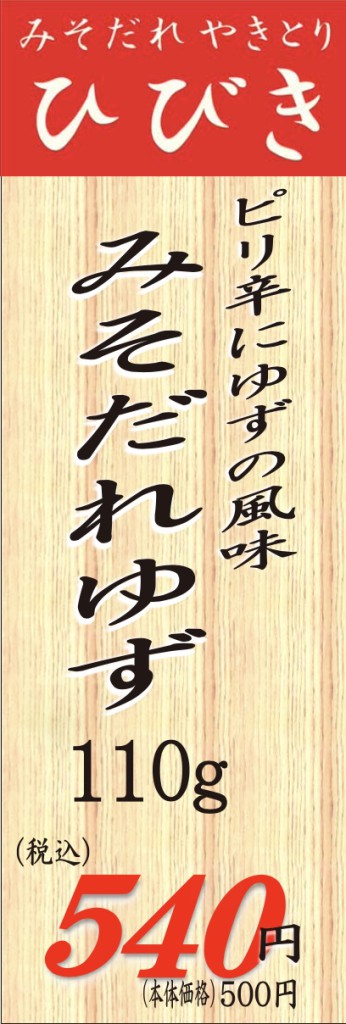 みそだれ やきとり
ひびき
ピリ辛にゆずの風味
みそだれゆず
110g
(税込)
540円
(本体価格)500円